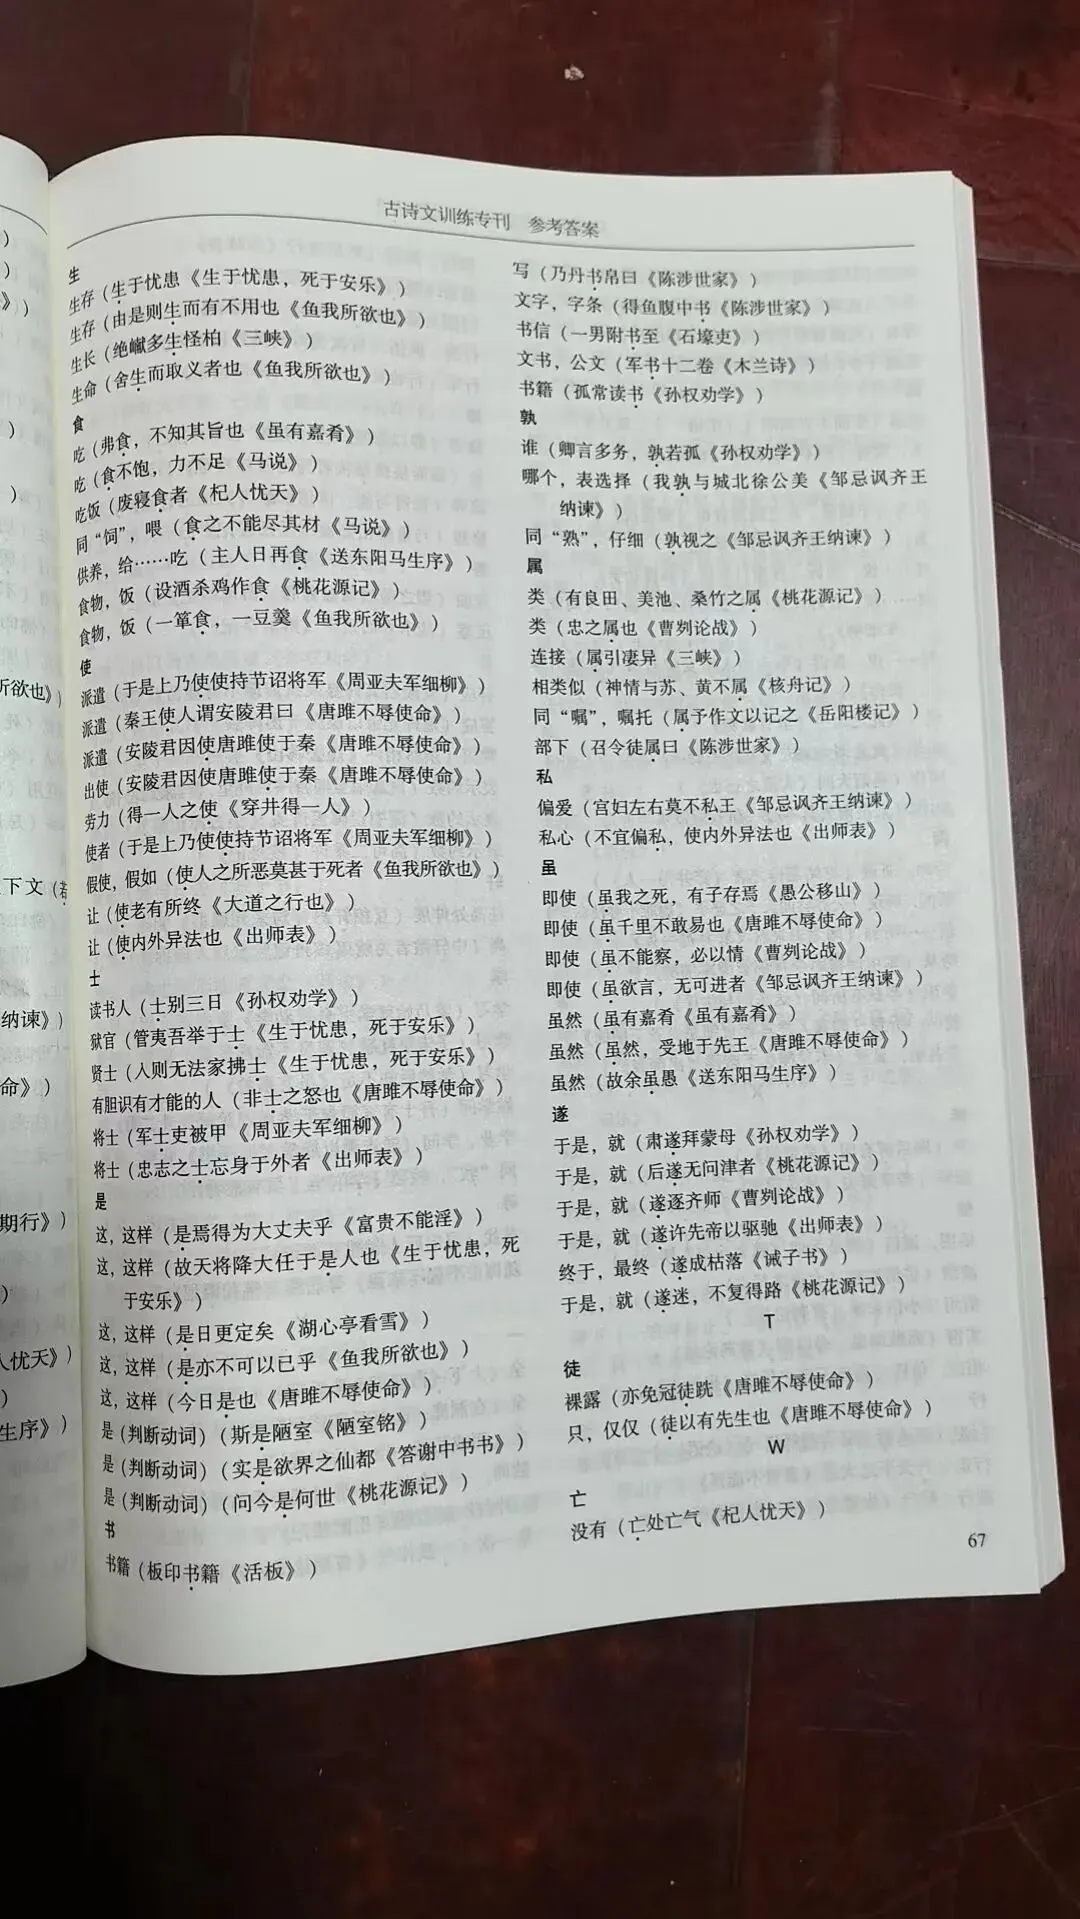 古诗文训练专刊 参考答案
生
生存（生于忧患《生于忧患，死于安乐》）
生存（由是则生而有不用也《鱼我所欲也》）
生长（绝巘多生怪柏《三峡》）
生命（舍生而取义者也《鱼我所欲也》）
食
吃（弗食，不知其旨也《虽有嘉肴》）
吃（食不饱，力不足《马说》）
吃饭（废寝食者《杞人忧天》）
同“饲”，喂（食之不能尽其材《马说》）
供养，给……吃（主人日再食《送东阳马生序》）
食物，饭（设酒杀鸡作食《桃花源记》）
食物，饭（一箪食，一豆羹《鱼我所欲也》）
使
派遣（于是上乃使使持节诏将军《周亚夫军细柳》）
派遣（秦王使人谓安陵君曰《唐雎不辱使命》）
派遣（安陵君因使唐雎使于秦《唐雎不辱使命》）
出使（安陵君因使唐雎使于秦《唐雎不辱使命》）
劳力（得一人之使《穿井得一人》）
使者（于是上乃使使持节诏将军《周亚夫军细柳》）
假使，假如（使人之所恶莫甚于死者《鱼我所欲也》）
让（使老有所终《大道之行也》）
让（使内外异法也《出师表》）
士
读书人（士别三日《孙权劝学》）
狱官（管夷吾举于士《生于忧患，死于安乐》）
贤士（入则无法家拂士《生于忧患，死于安乐》）
有胆识有才能的人（非士之怒也《唐雎不辱使命》）
将士（军士吏被甲《周亚夫军细柳》）
将士（忠志之士忘身于外者《出师表》）
是
这，这样（是焉得为大丈夫乎《富贵不能淫》）
这，这样（故天将降大任于是人也《生于忧患，死
于安乐》）
这，这样（是日更定矣《湖心亭看雪》）
这，这样（是亦不可以已乎《鱼我所欲也》）
这，这样（今日是也《唐雎不辱使命》）
是（判断动词）（斯是陋室《陋室铭》）
是（判断动词）（实是欲界之仙都《答谢中书书》）
是（判断动词）（问今是何世《桃花源记》）
书
书籍（板印书籍《活板》）
写（乃丹书帛曰《陈涉世家》）
文字，字条（得鱼腹中书《陈涉世家》）
书信（一男附书至《石壕吏》）
文书，公文（军书十二卷《木兰诗》）
书籍（孤常读书《孙权劝学》）
孰
谁（卿言多务，孰若孤《孙权劝学》）
哪个，表选择（我孰与城北徐公美《邹忌讽齐王
纳谏》）
同“熟”，仔细（孰视之《邹忌讽齐王纳谏》）
属
类（有良田、美池、桑竹之属《桃花源记》）
类（忠之属也《曹刿论战》）
连接（属引凄异《三峡》）
相类似（神情与苏、黄不属《核舟记》）
同“嘱”，嘱托（属予作文以记之《岳阳楼记》）
部下（召令徒属曰《陈涉世家》）
私
偏爱（宫妇左右莫不私王《邹忌讽齐王纳谏》）
私心（不宜偏私，使内外异法也《出师表》）
虽
即使（虽我之死，有子存焉《愚公移山》）
即使（虽千里不敢易也《唐雎不辱使命》）
即使（虽不能察，必以情《曹刿论战》）
即使（虽欲言，无可进者《邹忌讽齐王纳谏》）
虽然（虽有嘉肴《虽有嘉肴》）
虽然（虽然，受地于先王《唐雎不辱使命》）
虽然（故余虽愚《送东阳马生序》）
遂
于是，就（肃遂拜蒙母《孙权劝学》）
于是，就（后遂无问津者《桃花源记》）
于是，就（遂逐齐师《曹刿论战》）
于是，就（遂许先帝以驱驰《出师表》）
终于，最终（遂成枯落《诫子书》）
于是，就（遂迷，不复得路《桃花源记》）
T
徒
裸露（亦免冠徒跣《唐雎不辱使命》）
只，仅仅（徒以有先生也《唐雎不辱使命》）
W
亡
没有（亡处亡气《杞人忧天》）
67
所欲也》）
下文（若
纳谏》）
命》）
期行》）
人忧天》）
生序》）